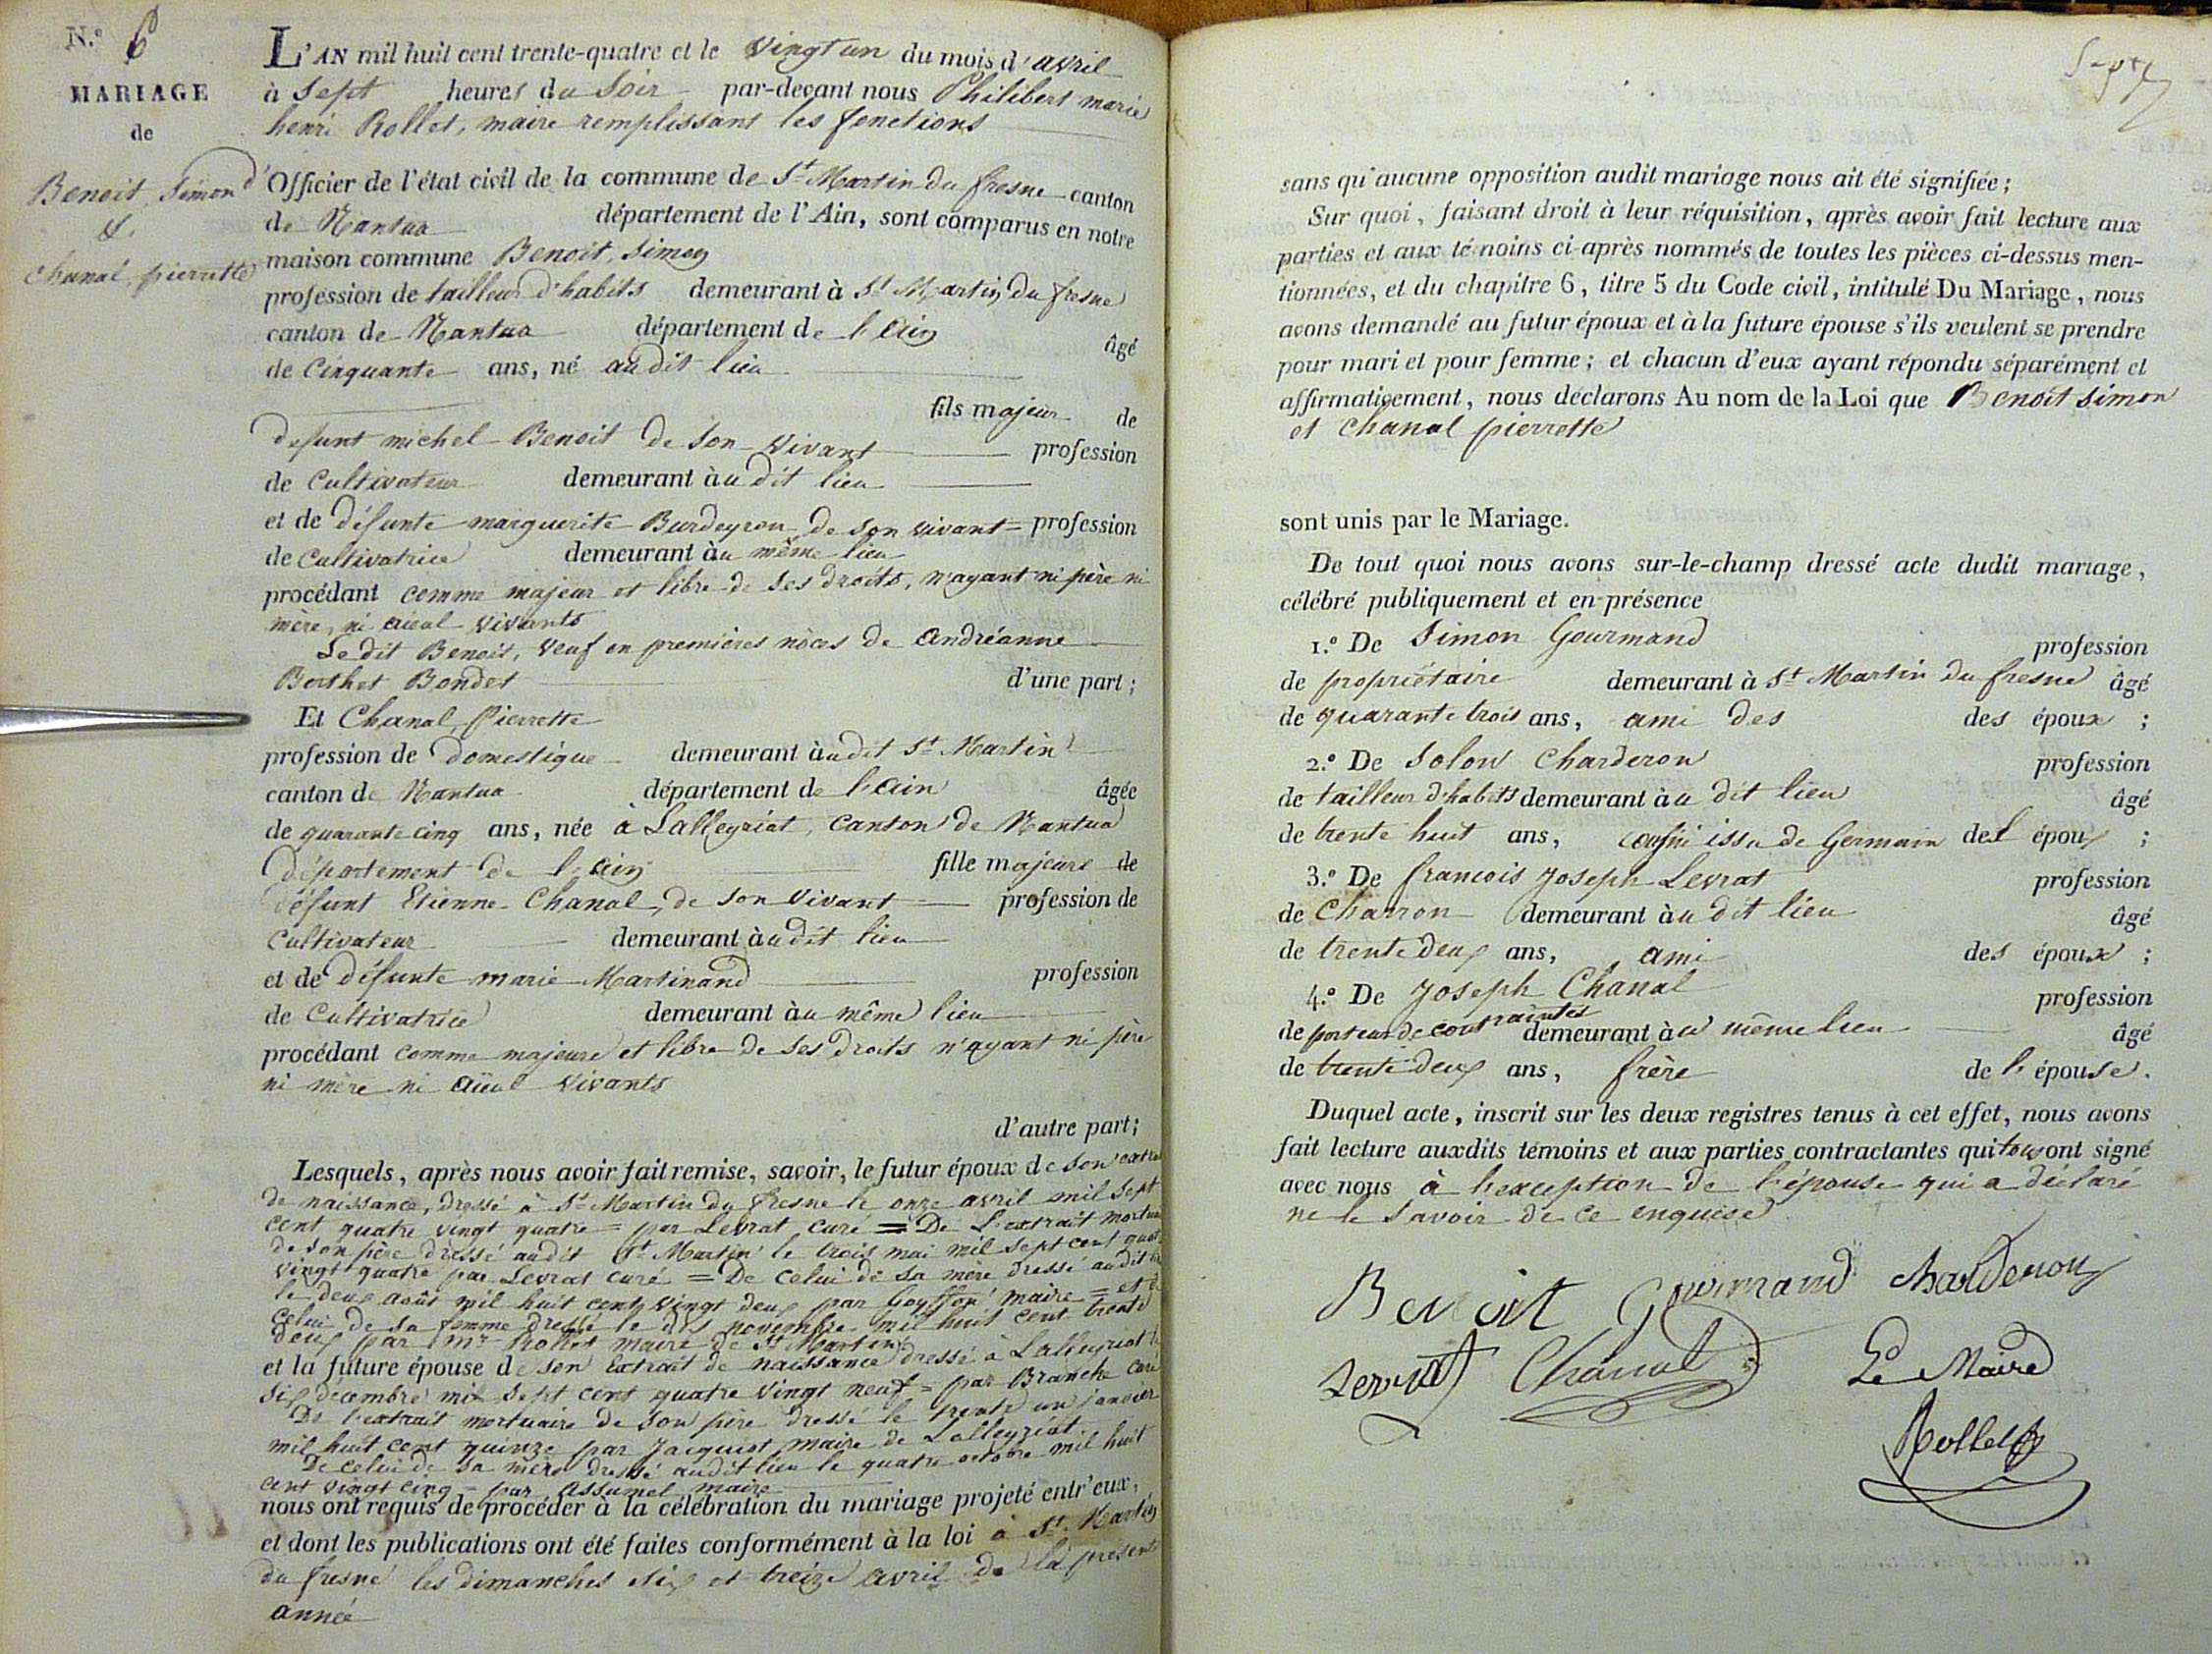 N.o 6
MARIAGE
de
Benoit, Simon
&
Chanal, pierrette
L'AN mil huit cent trente-quatre et le vingt un du mois d'avril
à Sept heures du Soir par-devant nous Philibert marie
henri Rollet, maire remplissant les fonctions
d'Officier de l'état civil de la commune de St Martin du fresne canton
de Nantua département de l'Ain, sont comparus en notre
maison commune Benoit, Simon
profession de tailleur d'habits demeurant à St Martin du fresne
canton de Nantua département de l'ain âgé
de Cinquante ans, né audit lieu
fils majeur de
defunt michel Benoit de son vivant profession
de Cultivateur demeurant àu dit lieu
et de défunte marguerite Burdeyron de son vivant = profession
de Cultivatrice demeurant àu même lieu
procédant comme majeur et libre de ses droits, n'ayant ni père ni
mère, ni aieul vivants
Le dit Benoit, veuf en premières nôces de Andréanne
Berthet Bondet d'une part ;
Et Chanal, Pierrette
profession de domestique demeurant àudit St Martin
canton de Nantua département de l'ain âgée
de quarante cinq ans, née à Lalleyriat, canton de Nantua
département de l'ain fille majeure de
défunt Etienne Chanal, de son vivant profession de
Cultivateur demeurant àudit lieu
et de défunte marie Martinand profession
de Cultivatrice demeurant àu même lieu
procédant comme majeure et libre de ses droits n'ayant ni père
ni mère ni aüeul vivants
d'autre part ;
Lesquels, après nous avoir fait remise, savoir, le futur époux de son extra
de naissance, dressé à St Martin du fresne le onze avril mil sept
cent quatre vingt quatre = par Levrat, curé = De L'extrait mortua
de son père dressé audit St Martin le trois mai mil sept cent quat
vingt quatre par Levrat curé = De celui de sa mère dressé audit lie
le deux août mil huit cent vingt deux par maire = et de
celui de sa femme dressé le dix novembre mil huit cent trente
deux par Mr Rollet maire de St Martin
et la future épouse de son Extrait de naissance dressé à Lalleyriat le
six décembre mil sept cent quatre vingt neuf = par Branche curé
De l'extrait mortuaire de son père dressé le trente un janvier
mil huit cent quinze par Jacquiot maire de Lalleyriat.
De celui de sa mère dressé audit lieu le quatre octobre mil huit
cent vingt cinq = par Assumel maire
nous ont requis de procéder à la célébration du mariage projeté entr'eux,
et dont les publications ont été faites conformément à la loi à St. Martin
du fresne les dimanches six et treize avril de la présente
année
Sept
sans qu'aucune opposition audit mariage nous ait été signifiée ;
Sur quoi, faisant droit à leur réquisition, après avoir fait lecture aux
parties et aux témoins ci-après nommés de toutes les pièces ci-dessus men-
tionnées, et du chapitre 6, titre 5 du Code civil, intitulé Du Mariage, nous
avons demandé au futur époux et à la future épouse s'ils veulent se prendre
pour mari et pour femme ; et chacun d'eux ayant répondu séparément et
affirmativement, nous déclarons Au nom de la Loi que Benoit simon
et Chanal pierrette
sont unis par le Mariage.
De tout quoi nous avons sur-le-champ dressé acte dudit mariage,
célébré publiquement et en présence
1.o De Simon Gourmand profession
de propriétaire demeurant à St Martin du fresne âgé
de quarante trois ans, ami des des époux ;
2.o De Solon Charderon profession
de tailleur d'habits demeurant àu dit lieu âgé
de trente huit ans, cousin issu de Germain de l époux ;
3.o De francois Joseph Levrat profession
de Charron demeurant àu dit lieu âgé
de trente deux ans, ami des époux ;
4.o De Joseph Chanal profession
de porteur de contraintes demeurant àu même lieu âgé
de trente deux ans, frère de l'épouse.
Duquel acte, inscrit sur les deux registres tenus à cet effet, nous avons
fait lecture auxdits témoins et aux parties contractantes qui tous ont signé
avec nous à l'exception de l'épouse qui a déclaré
ne le savoir de ce enquise
Benoit Gourmand Charderon
Levrat Chanal Le Maire
Rollet